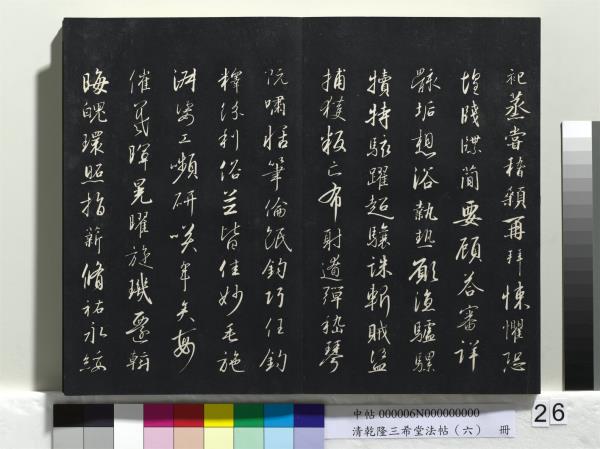 祀蒸嘗稽顙再拜悚懼恐
惶牋牒簡要顧答審詳
骸垢想浴執熱願涼驢騾
犢特駭躍超驤誅斬賊盜
捕獲叛亡布射遼彈嵇琴
阮嘯恬筆倫紙鈞巧任釣
釋紛利俗並皆佳妙毛施
淑姿工嚬研咲年矢每
催羲暉晃曜旋璣遷斡
晦魄環照指薪脩祐永綏
中帖 000006N000000000
清乾隆三希堂法帖（六） 冊
26